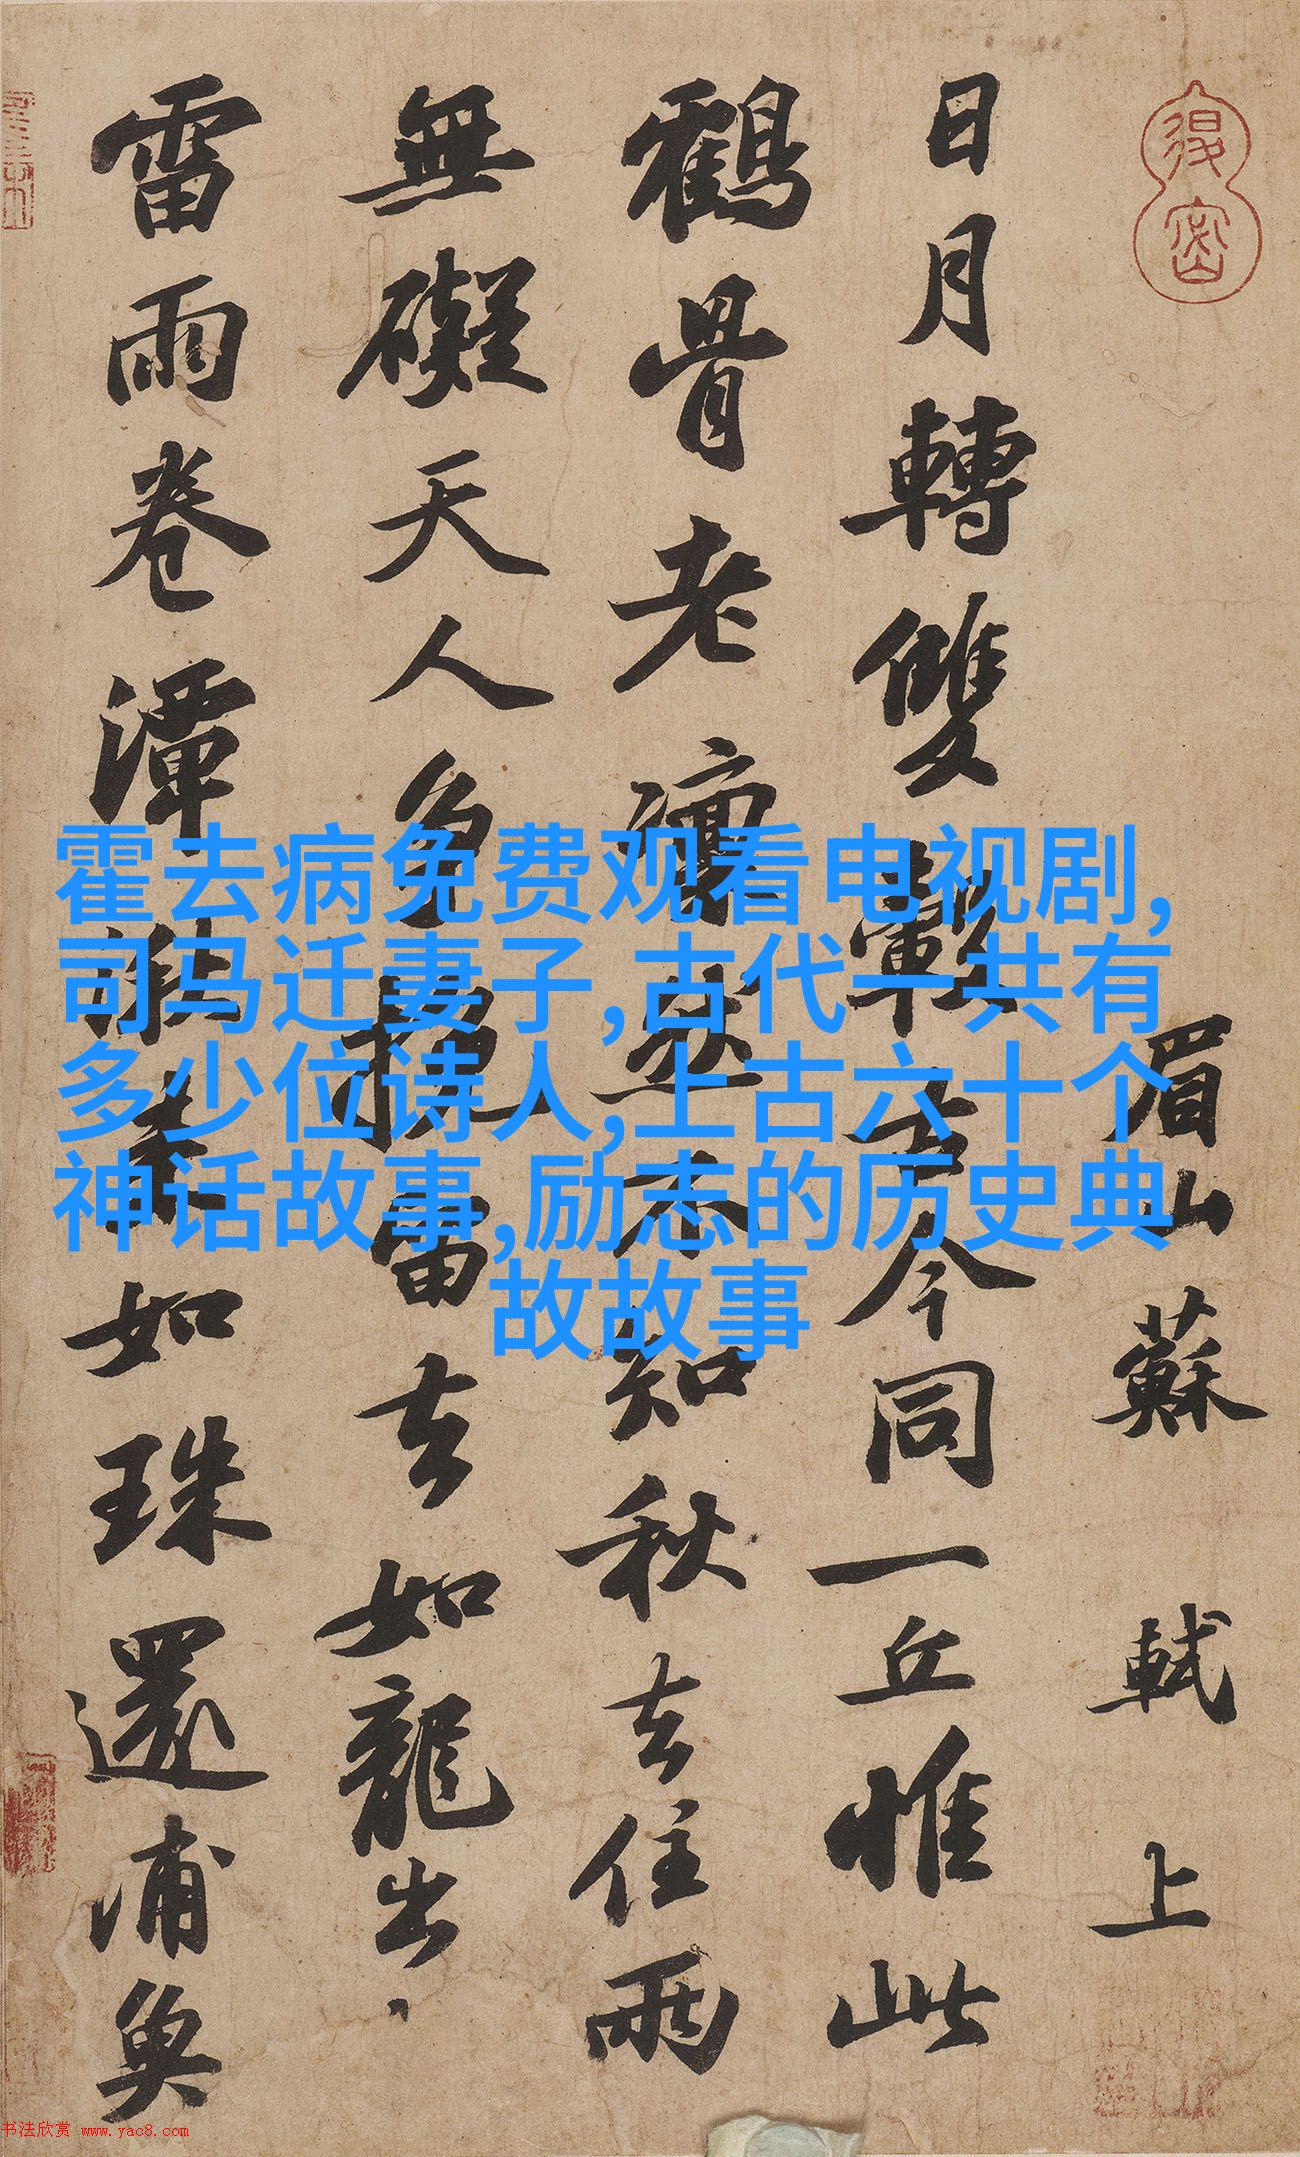 眉山蘇軾上
日月轉雙轂古今同一丘惟此
鶴骨老凜然不知秋去住兩
無礙天人爭挽留去如龍出
雷雨卷潭湫來如珠還浦魚
霍去病免费观看电视剧,
司马迁妻子,古代一共有
多少位诗人,上古六十个
神话故事,励志的历史典
故故事
书法欣赏 www.yac8.com